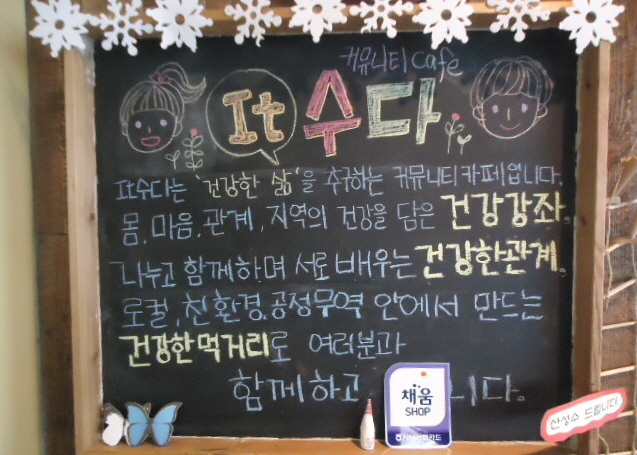 커뮤니티 cafe
It 수다
It수다는 '건강한 삶'을 추구하는 커뮤니티카페입니다.
몸, 마음, 관계, 지역의 건강을 담은 건강강좌,
나누고 함께하며 서로 배우는 건강한관계,
로컬, 친환경, 공정무역 안에서 만드는
건강한먹거리로 여러분과
함께하고 니다.
채움
SHOP
산성수 드립니다